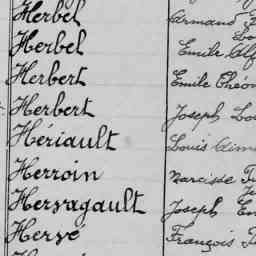 Herbel Armand
Herbel Emile
Herbert Emile Théo
Herbert Joseph
Hériault Louis
Herroin Narcisse
Hersragault Joseph
Hervé François